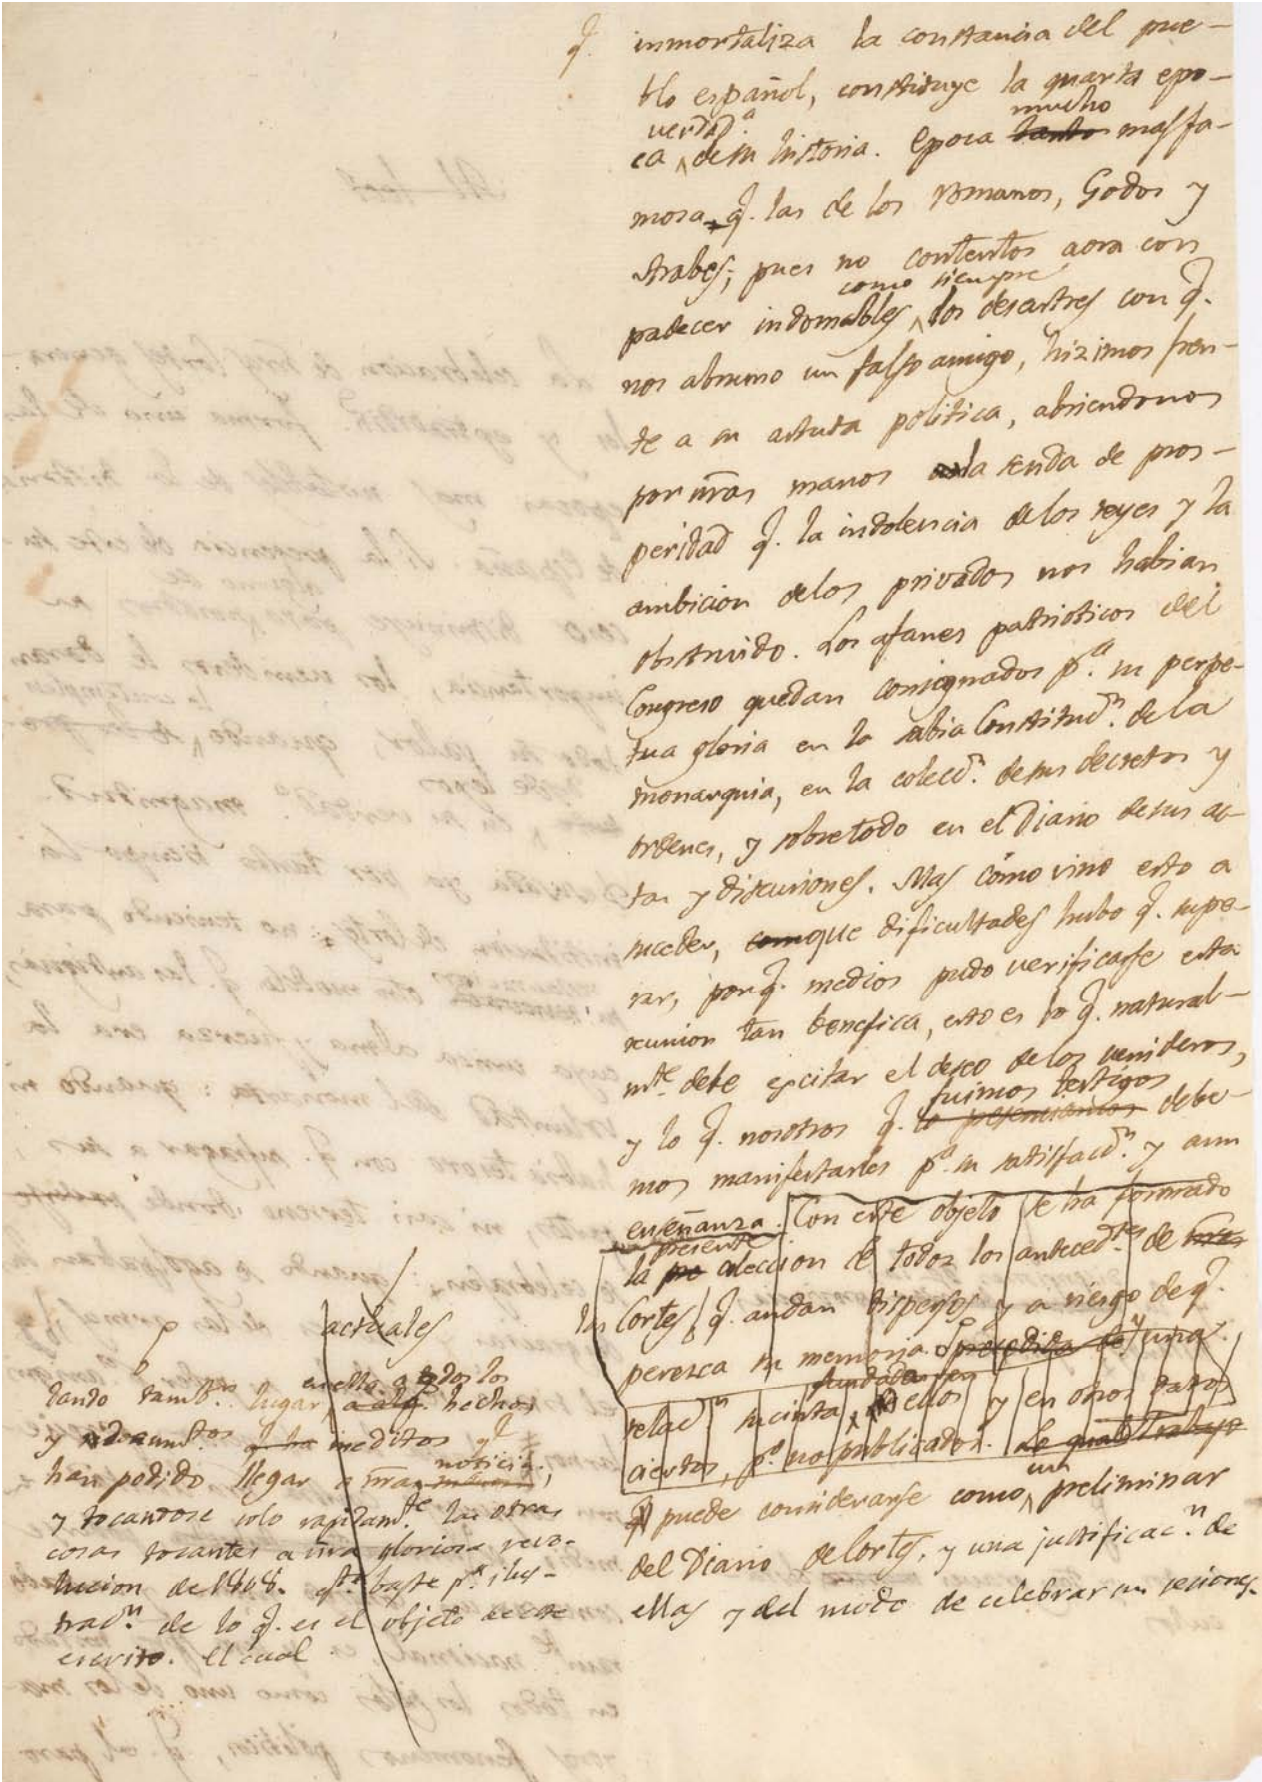 q. inmortaliza la constancia del pue-
blo español, constituye la quarta epo-
verdad.a mucho
ca de su historia. Epoca tanto mas fa-
mosa q. las de los Romanos, Godos y
Arabes; pues no contentos aora con
como siempre
padecer indomables los desastres con q.
nos abrumo un falso amigo, hizimos fren-
te a su astuta politica, abriendonos
por nras manos la senda de pros-
peridad q. la indolencia de los reyes y la
ambicion de los privados nos habian
obstruido. Los afanes patrioticos del
Congreso quedan consignados p.a su perpe-
tua gloria en la sabia Constituc.n de la
monarquia, en la colecc.n de sus decretos y
ordenes, y sobre todo en el Diario de sus ac-
tas y discusiones. Mas cómo vino esto a
suceder, com que dificultades hubo q. supe-
rar, por q. medios pudo verificarse esta
reunion tan benefica, esto es lo q. natural-
mte. debe escitar el deseo de los venideros,
fuimos testigos
y lo q. nosotros q. lo presenciamos debe-
mos manifestarles p.a su satisfacc.n y aun
enseñanza. Con este objeto se ha formado
presente
la pre coleccion de todos los anteced.tes de
las Cortes q. andan dispersos y a riesgo de q.
perezca su memoria precedida de una
fundada en
relac.n sucinta ellos y en otros datos
ciertos, p.o no publicados. Le qual trabajo
un
puede considerarse como preliminar
del Diario de Cortes, y una justificac.n de
ellas y del modo de celebrar sus sesiones.
actuales
en ella a todos los
dando tamb.n lugar a alg. hechos
y q. ha ineditos q.
noticia,
han podido llegar a nra
y tocandose solo rapidam.te las otras
cosas tocantes a nra gloriosa revo-
lucion de 1808. esto baste p.a ilus-
trac.n de lo q. es el objeto de este
escrito. El cual